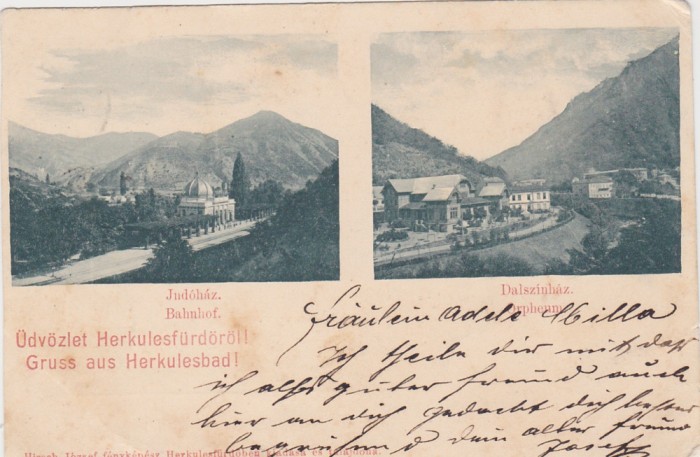 Judóház.
Bahnhof.
Dalszinház.
Orpheum.
Üdvözlet Herkulesfürdöröl!
Gruss aus Herkulesbad!
Fräulein Adele Hilla
Ich theile dir mit das
ich als guter freund auch
hier an dich gedacht dich
dein alter freund
Hirsch József fényképész Herkulesfürdöben kiadása és